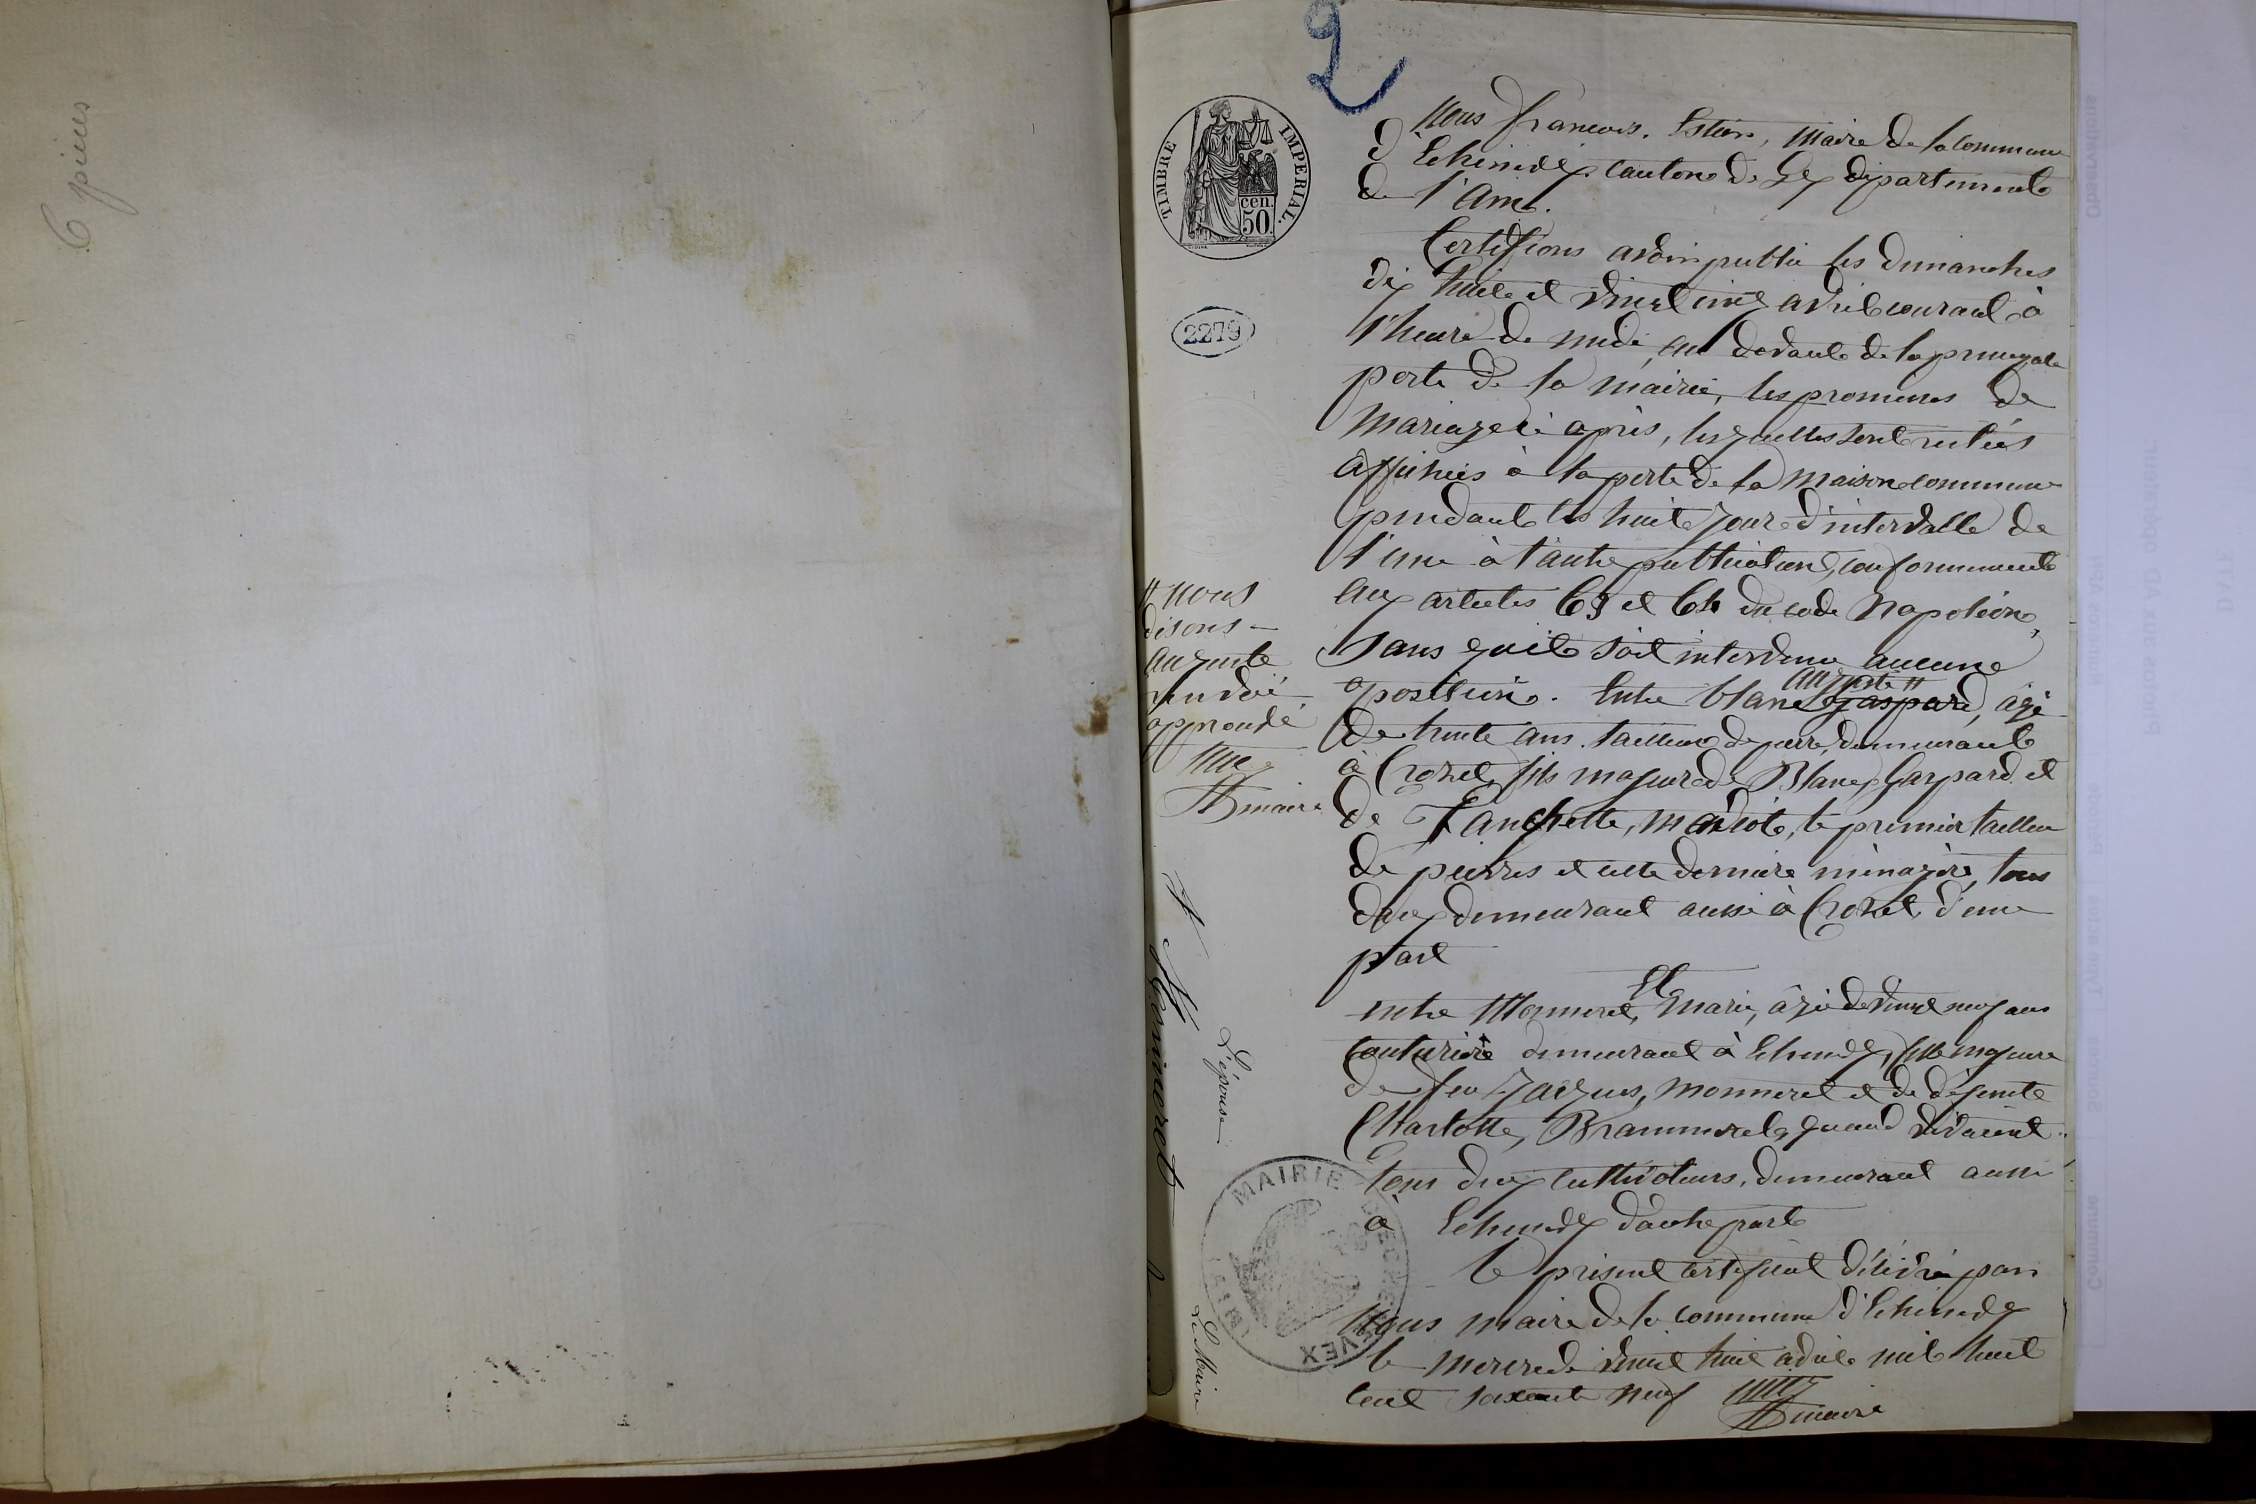 6 pièces
2
TIMBRE IMPERIAL.
50 cen.
2279
Nous François. Estier, Maire de la commune
d'Echenevex canton de Gex département
de l'Ain.
Certifions avoir publié les dimanches
dix huit et vingt cinq avril courant à
l'heure de midi, au devant de la principale
porte de la mairie, les promesses de
Mariage ci après, lesquelles sont restées
affichées à la porte de la Maison commune
pendant les huit jours d'intervalle de
l'une à l'autre publication, conformément
aux articles 63 et 64 du code Napoléon,
sans qu'il soit intervenu aucune
oposition. Entre Blanc Gaspard, âgé
auguste #
de trente ans. tailleur de pierre, demeurant
à Crozet, fils majeur de Blanc, Gaspard et
de Fanchette, le premier tailleur
de pierres et cette dernière ménagère, tous
deux demeurant aussi à Crozet, d'une
part
Et
entre Monneret, Marie, âgée de vingt neuf ans
couturière demeurant à Echenevex, fille majeure
de feu Jacques, Monneret et de défunte
Charlotte, quand vivaient
tous deux cultivateurs, demeurant aussi
à Echenevex d'autre part
Le présent certificat délivré par
Nous maire de la commune d'Echenevex
le mercredi vingt huit avril mil huit
cent soixante neuf
maire
# nous
disons -
auguste
renvoi
approuvé
maire
L'épouse
Monneret
Le Maire
MAIRIE D'ECHENEVEX
(AIN)